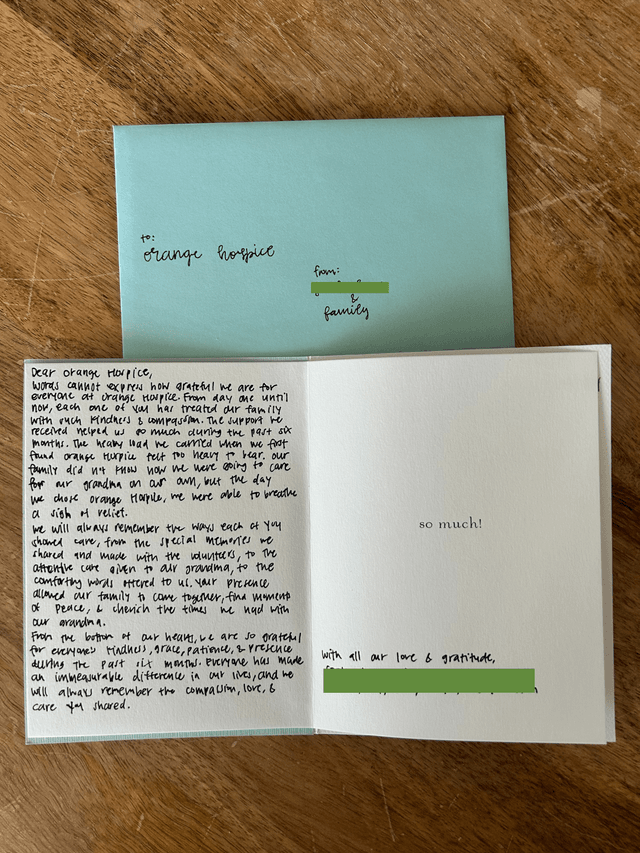 to:
orange hospice
from:
&
family
Dear Orange Hospice,
Words cannot express how grateful we are for
everyone at Orange Hospice. From day one until
now, each one of you has treated our family
with such kindness & compassion. The support we
received helped us so much during the past six
months. The heavy load we carried when we first
found Orange Hospice felt too heavy to bear. Our
family did not know how we were going to care
for our grandma on our own, but the day
we chose Orange Hospice, we were able to breathe
a sigh of relief.
We will always remember the ways each of you
showed care, from the special memories we
shared and made with the volunteers, to the
attentive care given to our grandma, to the
comforting words offered to us. Your presence
allowed our family to come together, find moments
of peace, & cherish the times we had with
our grandma.
From the bottom of our hearts, we are so grateful
for everyone's kindness, grace, patience, & presence
during the past six months. Everyone has made
an immeasurable difference in our lives, and we
will always remember the compassion, love, &
care you shared.
so much!
With all our love & gratitude,